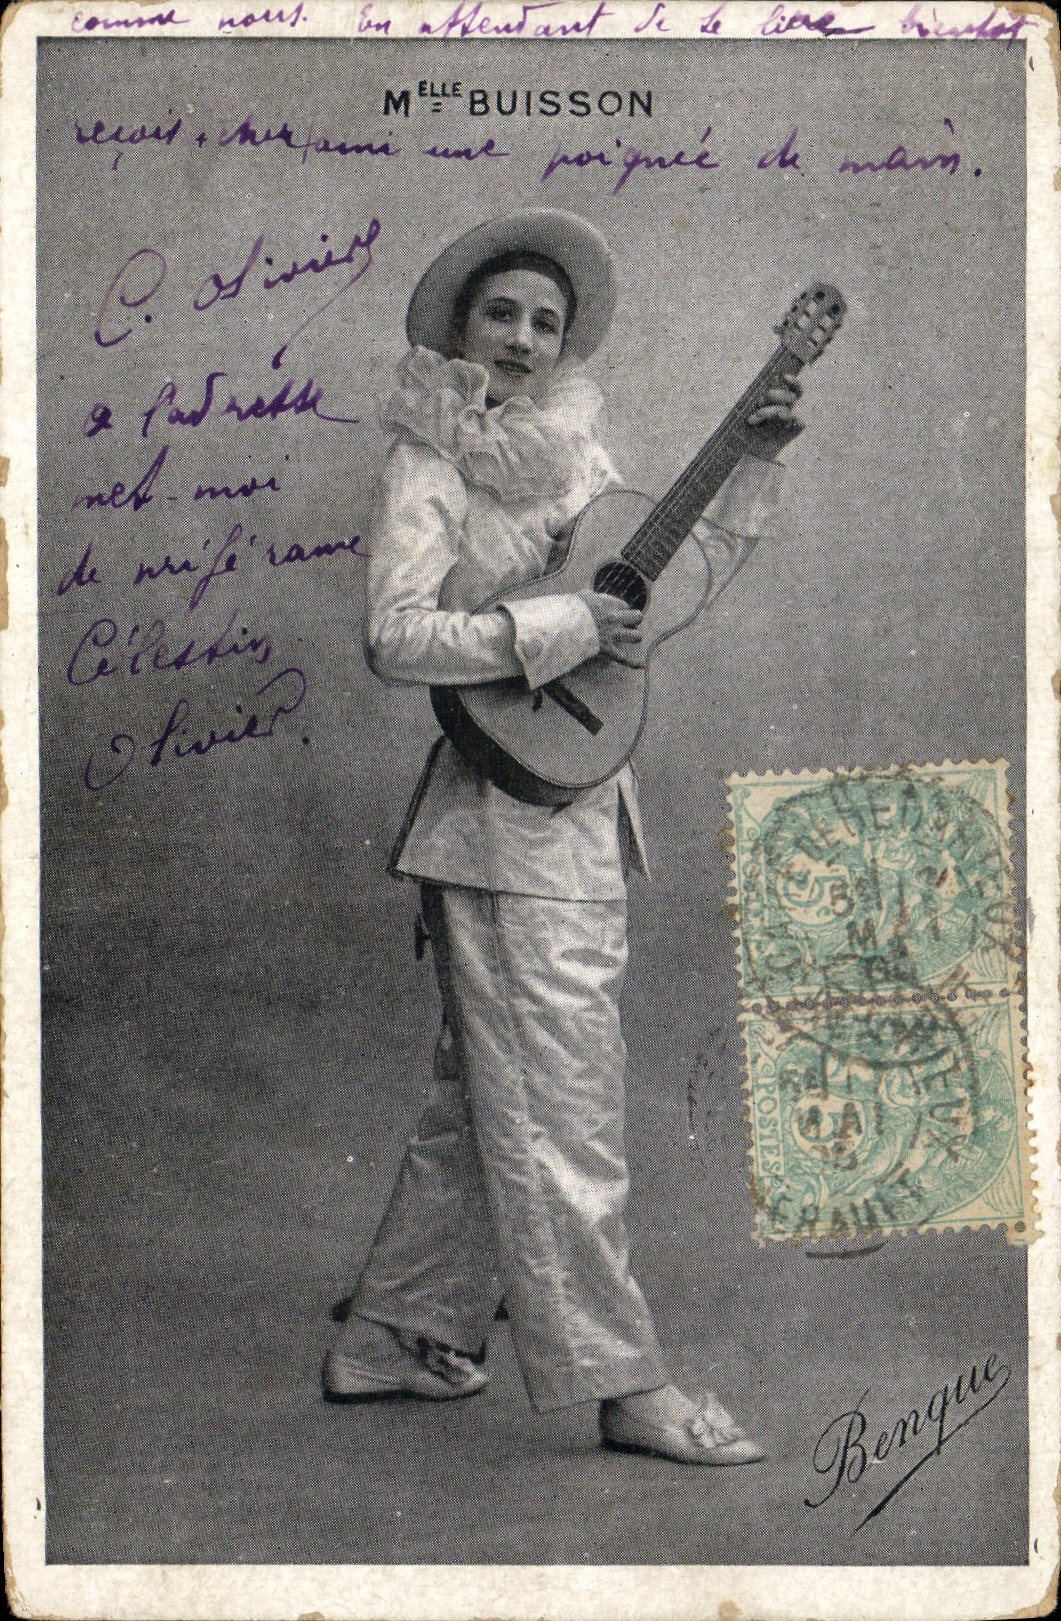 comme nous. En attendant de te lire bientot
MELLE BUISSON
reçois cher ami une poignée de main.
C. Olivier
a l'adresse
met-moi
de préférance
Célestin
Olivier.
5
POSTES
5
MAI
HERAULT
Benque